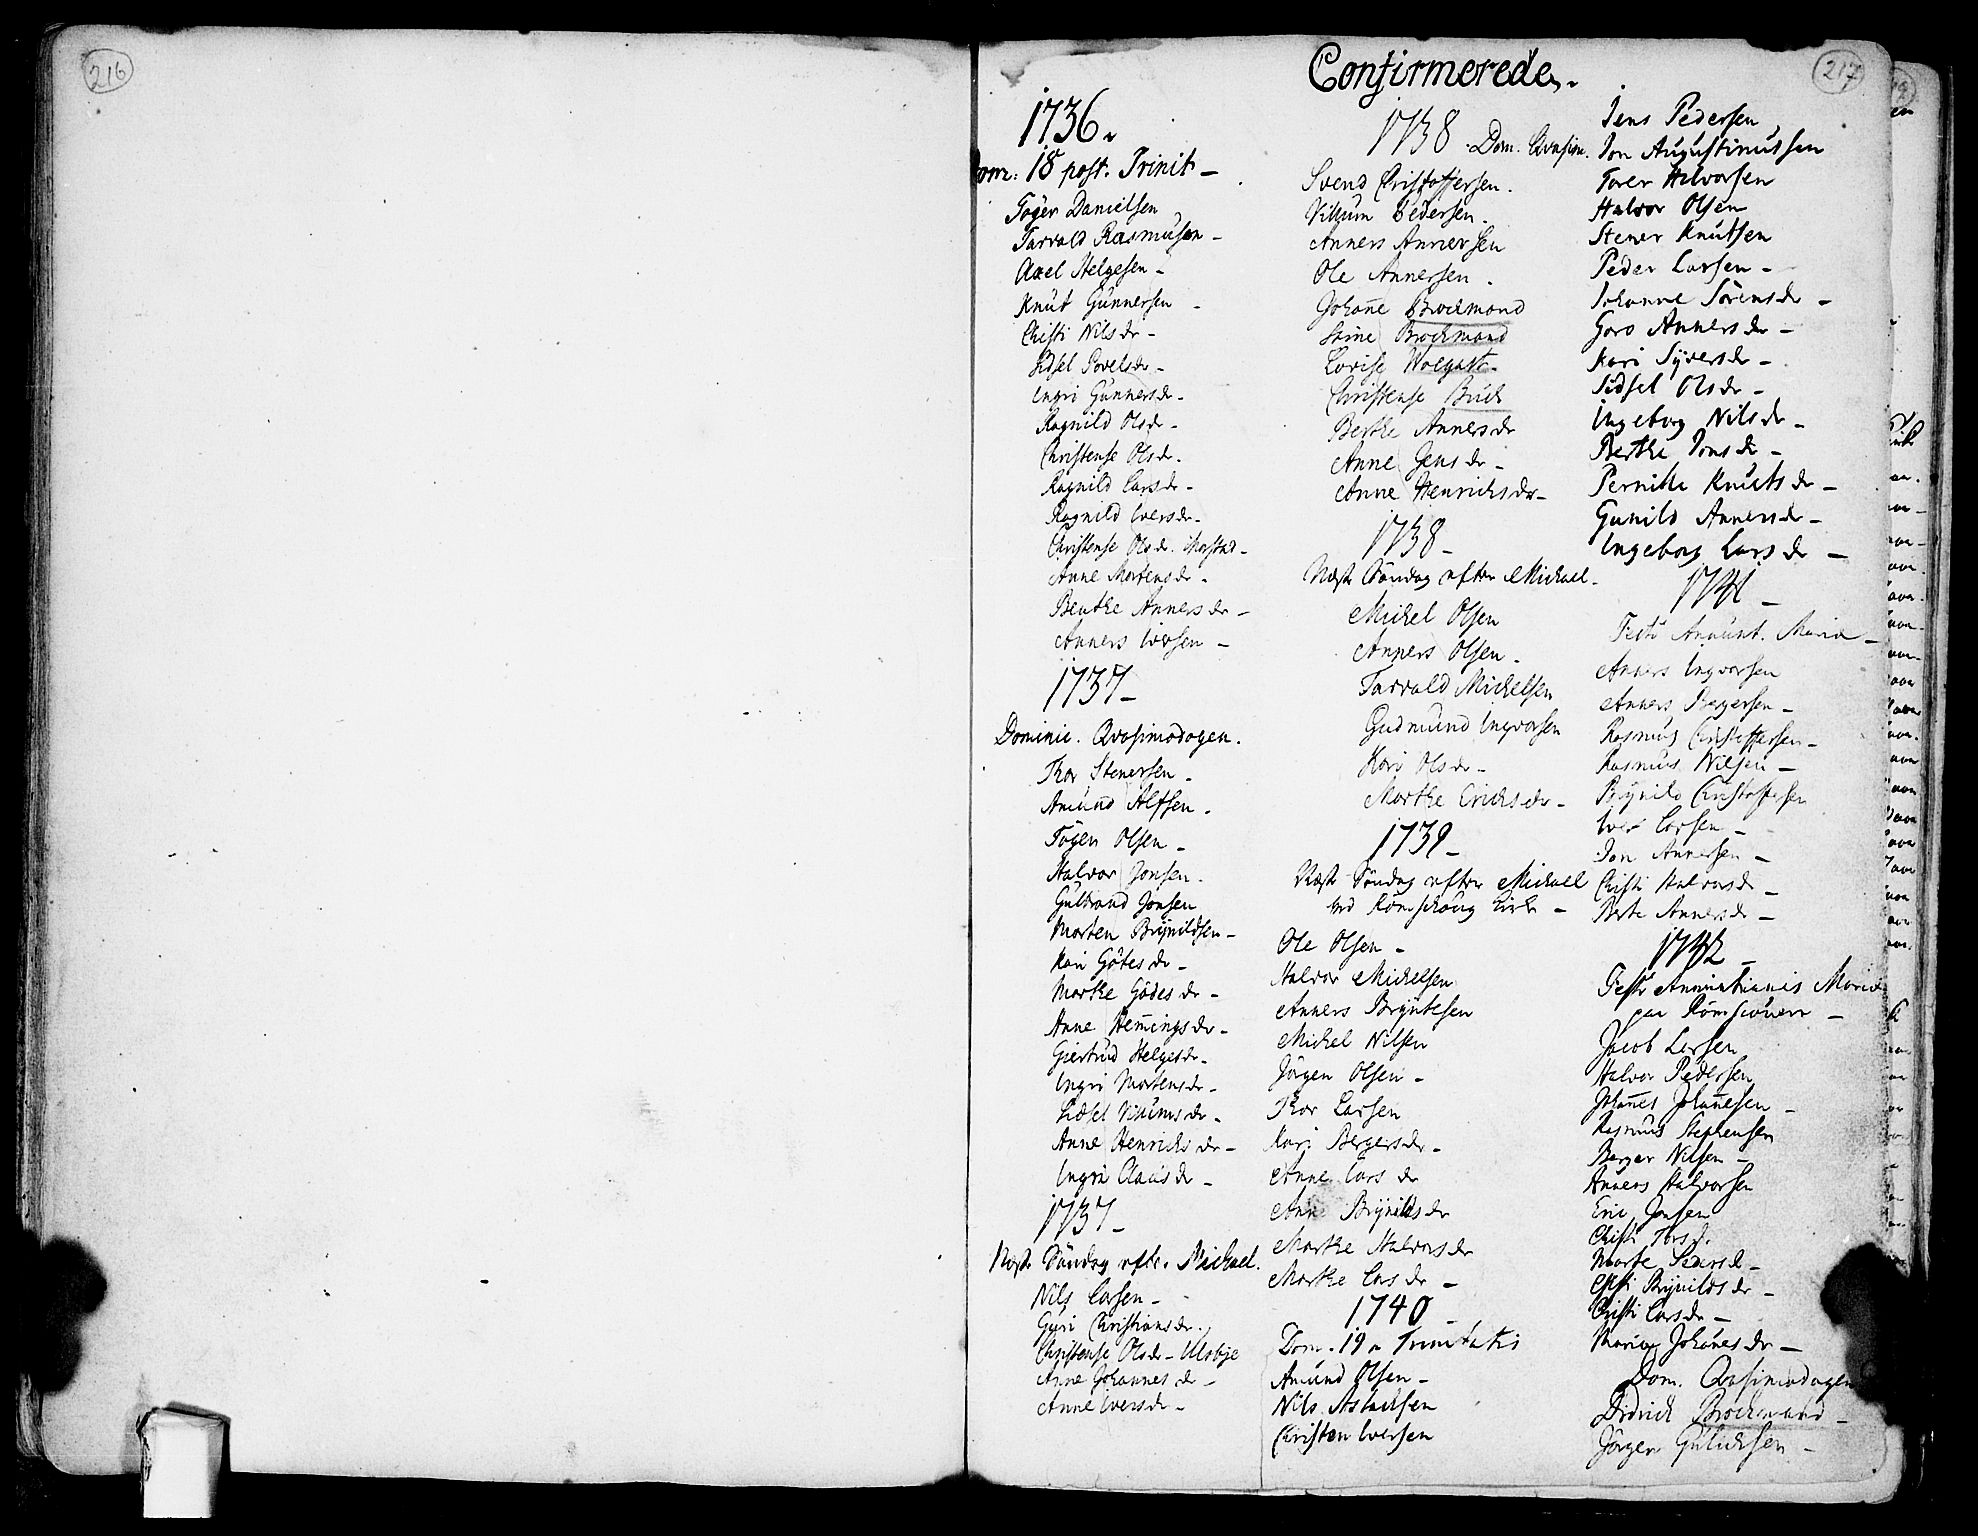 216
217
Confirmerede.
1736.
Dom: 18 post. Trinit –
Töger Danielsen
Tarvald Rasmusen –
Axel Helgesen –
Knut Gunnersen –
Christi Nilsdr –
Sidsel Povelsdr –
Ingri Gunnersdr –
Ragnild Olsdr –
Christense Olsdr.
Ragnild Larsdr –
Ragnild Iversdr –
Christense Olsdr.
Anne Mortensdr –
Berthe Annersdr –
Anners Iversen –
1737 –
Dominic. Qvasimodogen.
Thor Stenersen –
Amund Alfsen.
Töger Olsen –
Halvor Jonsen.
Gulbrand Jonsen
Morten Brynildsen –
Kari Götesdr –
Marthe Gödesdr –
Anne Hem̄ingsdr –
Giertrud Helgesdr –
Ingri Mortensdr –
Sidsel Villumsdr –
Anne Henrichsdr –
Ingri Clausdr –
1737 –
Næste Söndag efter Michael.
Nils Larsen –
Guri Christiansdr.
Christense Olsdr – Ulsbye
Anne Johannesdr –
Anne Iversdr –
1738. Dom. Qvasim.
Svend Christoffersen.
Villum Pedersen.
Anners Annersen
Ole Annersen.
Johan̄e Brochmand
Stine Brochmand
Lovise Wolgast –
Christense Buch
Berthe Annersdr
Anne Jensdr –
Anne Henrichsdr –
1738 –
Næste Söndag efter Michael.
Michel Olsen
Anners Olsen.
Tarvald Michelsen
Gudmund Ingvorsen
Kari Olsdr –
Marthe Erichsdr –
1739 –
Næste Söndag efter Michaell
ved Römschoug Kirke –
Ole Olsen –
Halvor Michelsen
Anners Bryntesen
Michel Nilsen
Jörgen Olsen –
Thor Larsen
Kari Bergersdr –
Anne Larsdr
Anne Brynildsdr
Marthe Halvorsdr
Marthe Larsdr –
1740
Dom. 19 a Trinitatis
Amund Olsen –
Nils Aslachsen
Christen Iversen
Jens Pedersen
Jon Augustinussen
Torer Halvorsen
Halvor Olsen
Stener Knutsen
Peder Larsen –
Johanne Sörensdr –
Goro Annersdr –
Kari Syversdr –
Sidsel Olsdr –
Ingeborg Nilsdr –
Berthe Jonsdr –
Pernille Knutsdr –
Gunild Annersdr –
Ingeborg Larsdr –
1741 –
Festo Anunt. Mariæ –
Anners Ingvorsen
Anners Bergersen –
Rasmus Christoffersen –
Rasmus Nilsen –
Brynild Christoffersen
Iver Larsen –
Jon Annersen –
Christi Halvorsdr –
Berte Annersdr –
1742 –
Festo Annuntiationis Mariæ
paa Römscouen –
Jacob Larsen
Halvor Pedersen
Johan̄es Johan̄esen –
Rasmus Stephensen
Berger Nilsen –
Anners Halvorsen
Eric Jonsen
Christi Torsd.
Marte Larsdr –
Christi Brynildsdr –
Christi Larsdr –
Maria Johan̄esdr –
Dom. Qvasimodogen
Didrich Brochmand –
Jörgen Gulichsen –